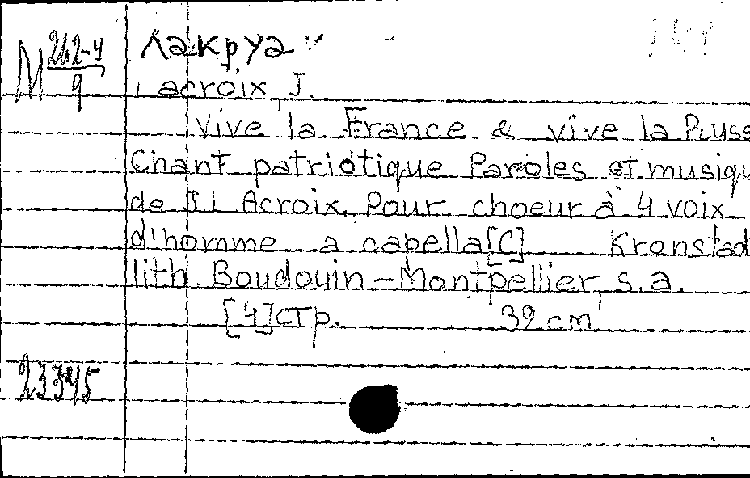 М 262-4/9
Лакруа
Lacroix J.
Vive la France & vive la Russe
Chant patriotique Paroles et musiqu
de J. L Acroix. Pour choeur à 4 voix
d'homme a capella [C] Kronstad
lith Boudouin-Montpellier, s.a.
[4] стр. 32 cm
23345